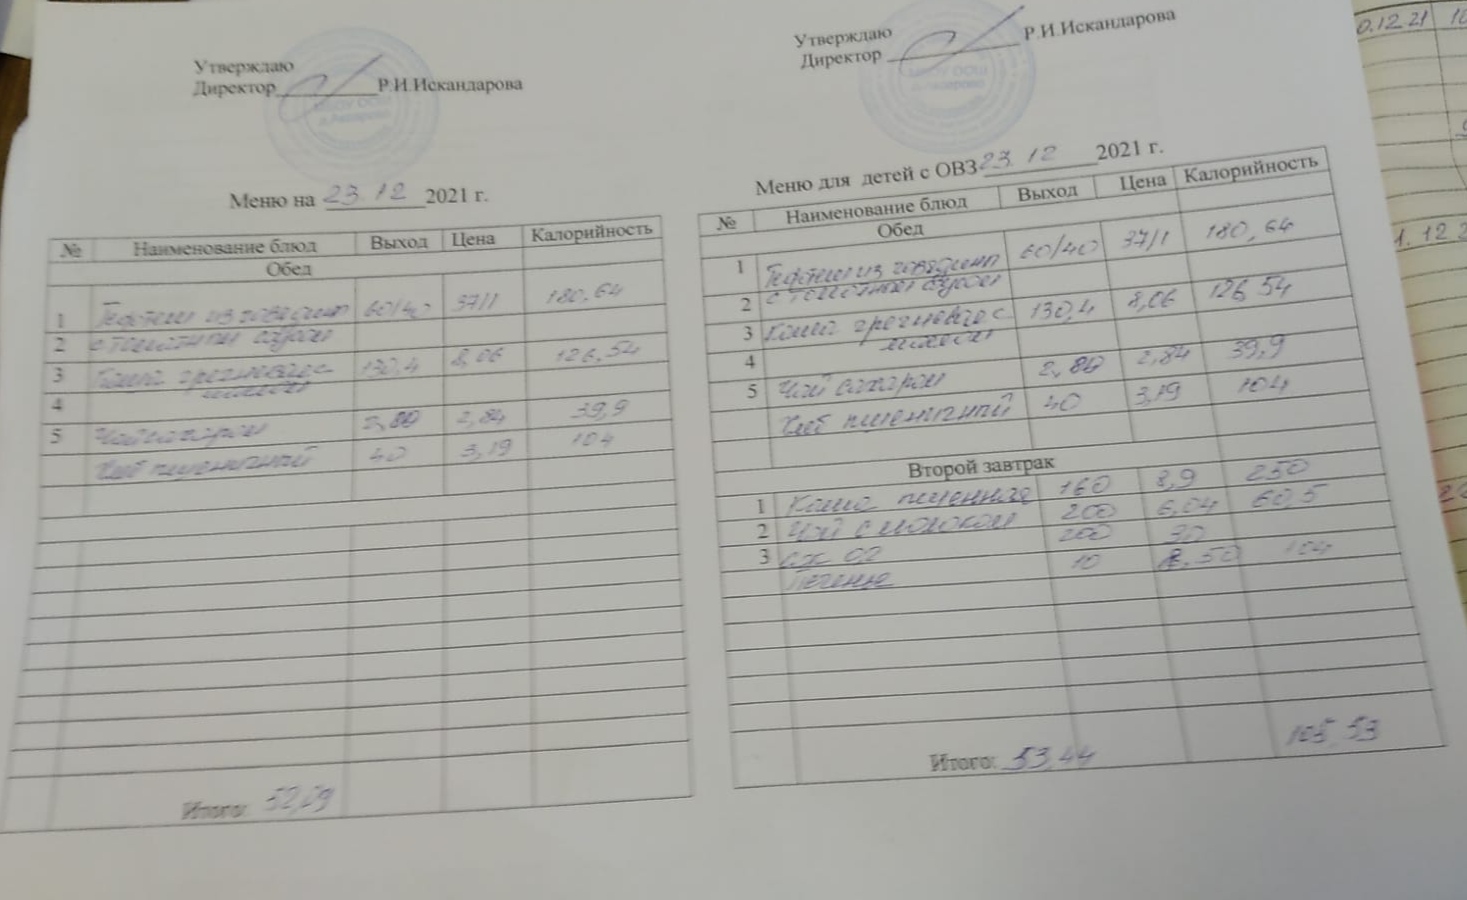 Утверждаю
Директор Р.И.Искандарова
Меню на 23.12 2021 г.
№ Наименование блюд Выход Цена Калорийность
Обед
1 Тефтели из говядины 60/40 37/1 180,64
2 с томатным соусом
3 Каша гречневая с 130,4 8,06 126,54
маслом
4
5 Чай сахаром 2,84 39,9
Хлеб пшеничный 40 3,19 104
Итого:
Утверждаю
Директор Р.И.Искандарова
Меню для детей с ОВЗ 23.12 2021 г.
№ Наименование блюд Выход Цена Калорийность
Обед
1 Тефтели из говядины 60/40 37/1 180,64
с томатным соусом
2
3 Каша гречневая с 130,4 8,06 126,54
маслом
4
5 Чай сахаром 2,84 39,9
Хлеб пшеничный 40 3,19 104
Второй завтрак
1 Каша пшенная 160 8,9 250
2 Чай с молоком 200 6,04 60,5
3 200 30
Печенье 10 104
Итого: 53,44
0.12.21